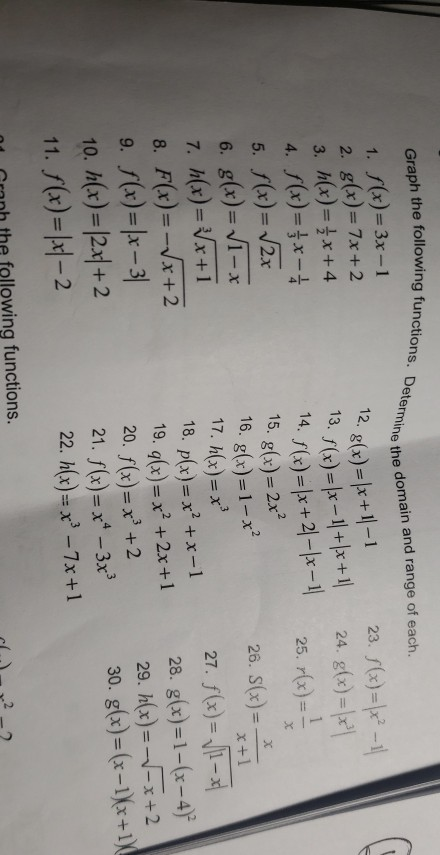 Graph the following functions. Determine the domain and range of each.
1. f(x) = 3x − 1
2. g(x) = 7x + 2
3. h(x) = ½x + 4
4. f(x) = ⅓x − ¼
5. f(x) = √(2x)
6. g(x) = √(1 − x)
7. h(x) = ∛(x + 1)
8. F(x) = −√(x + 2)
9. f(x) = |x − 3|
10. h(x) = |2x| + 2
11. f(x) = |x| − 2
12. g(x) = |x + 1| − 1
13. f(x) = |x − 1| + |x + 1|
14. f(x) = |x + 2| − |x − 1|
15. g(x) = 2x²
16. g(x) = 1 − x²
17. h(x) = x³
18. p(x) = x² + x − 1
19. q(x) = x² + 2x + 1
20. f(x) = x³ + 2
21. f(x) = x⁴ − 3x³
22. h(x) = x³ − 7x + 1
23. f(x) = |x² − 1|
24. g(x) = |x³|
25. r(x) = 1/x
26. S(x) = x/(x + 1)
27. f(x) = √|1 − x|
28. g(x) = 1 − (x − 4)²
29. h(x) = −√(−x + 2)
30. g(x) = (x − 1)(x + 1)(
Graph the following functions.